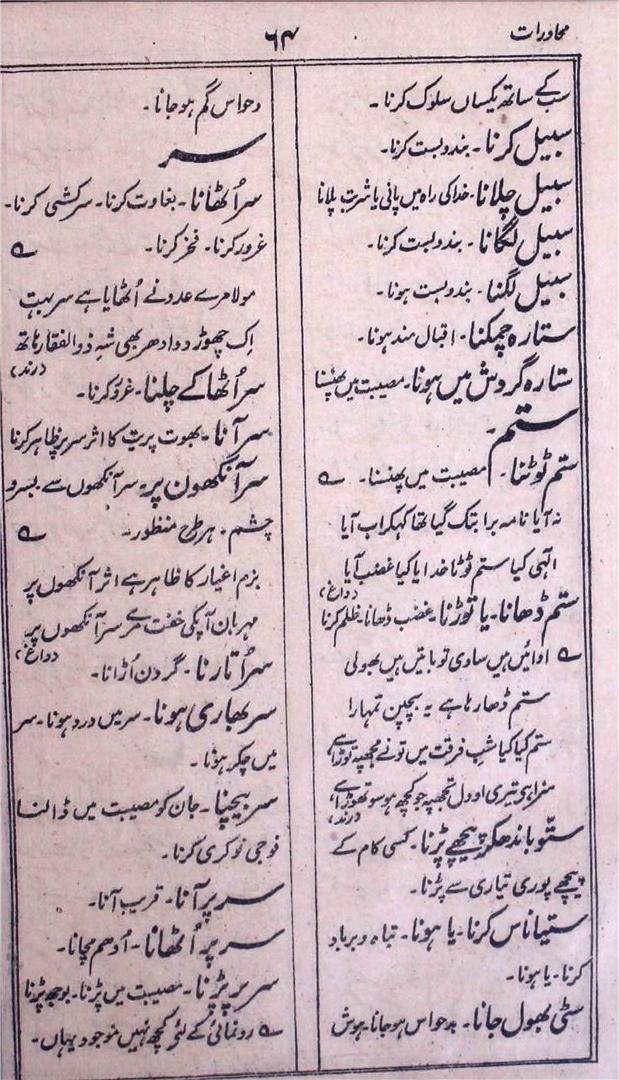 محاورات
۶۴
سب کے ساتھ یکساں سلوک کرنا۔
سبیل کرنا۔ بندوبست کرنا۔
سبیل چلانا۔ خدا کی راہ میں پانی یا شربت پلانا
سبیل لگانا۔ بندوبست کرنا۔
سبیل لگنا۔ بندوبست ہونا۔
ستارہ چمکنا۔ اقبال مند ہونا۔
ستارہ گردش میں ہونا۔ مصیبت میں پھنسنا
ستم۔
ستم ٹوٹنا۔ مصیبت میں پھنسنا۔ ؎
نہ آیا نامہ بر اب تک گیا تھا کہکر اب آیا
الٰہی کیا ستم ٹوٹا خدایا کیا غضب آیا
(داغ)
ستم ڈھانا۔ یا توڑنا۔ غضب ڈھانا۔ ظلم کرنا
؎ اوائیں ہیں ساوی تو باتیں ہیں بھولی
ستم ڈھا رہا ہے یہ بچپن تمہارا
ستم کیا کیا شب فرقت میں تونے مجھپہ توڑا ہے
سزا ہو تیری او دل تجھپہ جو کچھ ہو سو تھوڑا ہے
(رند)
ستّو باندھکر پیچھے پڑنا۔ کسی کام کے
پیچھے پوری تیاری سے پڑنا۔
ستیاناس کرنا۔ یا ہونا۔ تباہ و برباد
کرنا۔ یا ہونا۔
سٹی بھول جانا۔ بدحواس ہو جانا۔ ہوش
و حواس گم ہو جانا۔
سر
سر اُٹھانا۔ بغاوت کرنا۔ سرکشی کرنا۔
غرور کرنا۔ فخر کرنا۔ ؎
مولا مرے عدو نے اُٹھایا ہے سر بہت
اِک چھوڑ دو ادھر بھی شہِ ذوالفقار ہاتھ
(رند)
سر اُٹھا کے چلنا۔ غرور کرنا۔
سر آنا۔ بھوت پریت کا اثر سر پر ظاہر کرنا
سر آنکھون پر۔ سر آنکھوں سے۔ بسرو
چشم۔ ہر طرح منظور۔ ؎
بزم اغیار کا ظاہر ہے اثر آنکھوں پر
مہربان آپکی خفت مرے سر آنکھوں پر
(داغ)
سر اُتارنا۔ گردن اُڑانا۔
سر بھاری ہونا۔ سر میں درد ہونا۔ سر
میں چکر ہونا۔
سر بیچنا۔ جان کو مصیبت میں ڈالنا
فوجی نوکری کرنا۔
سر پر آنا۔ قریب آنا۔
سر پر اُٹھانا۔ اُدھم مچانا۔
سر پر پڑنا۔ مصیبت میں پڑنا۔ بوجھ پڑنا
؎ رونمائی کے لئے کچھ نہیں موجود یہاں۔